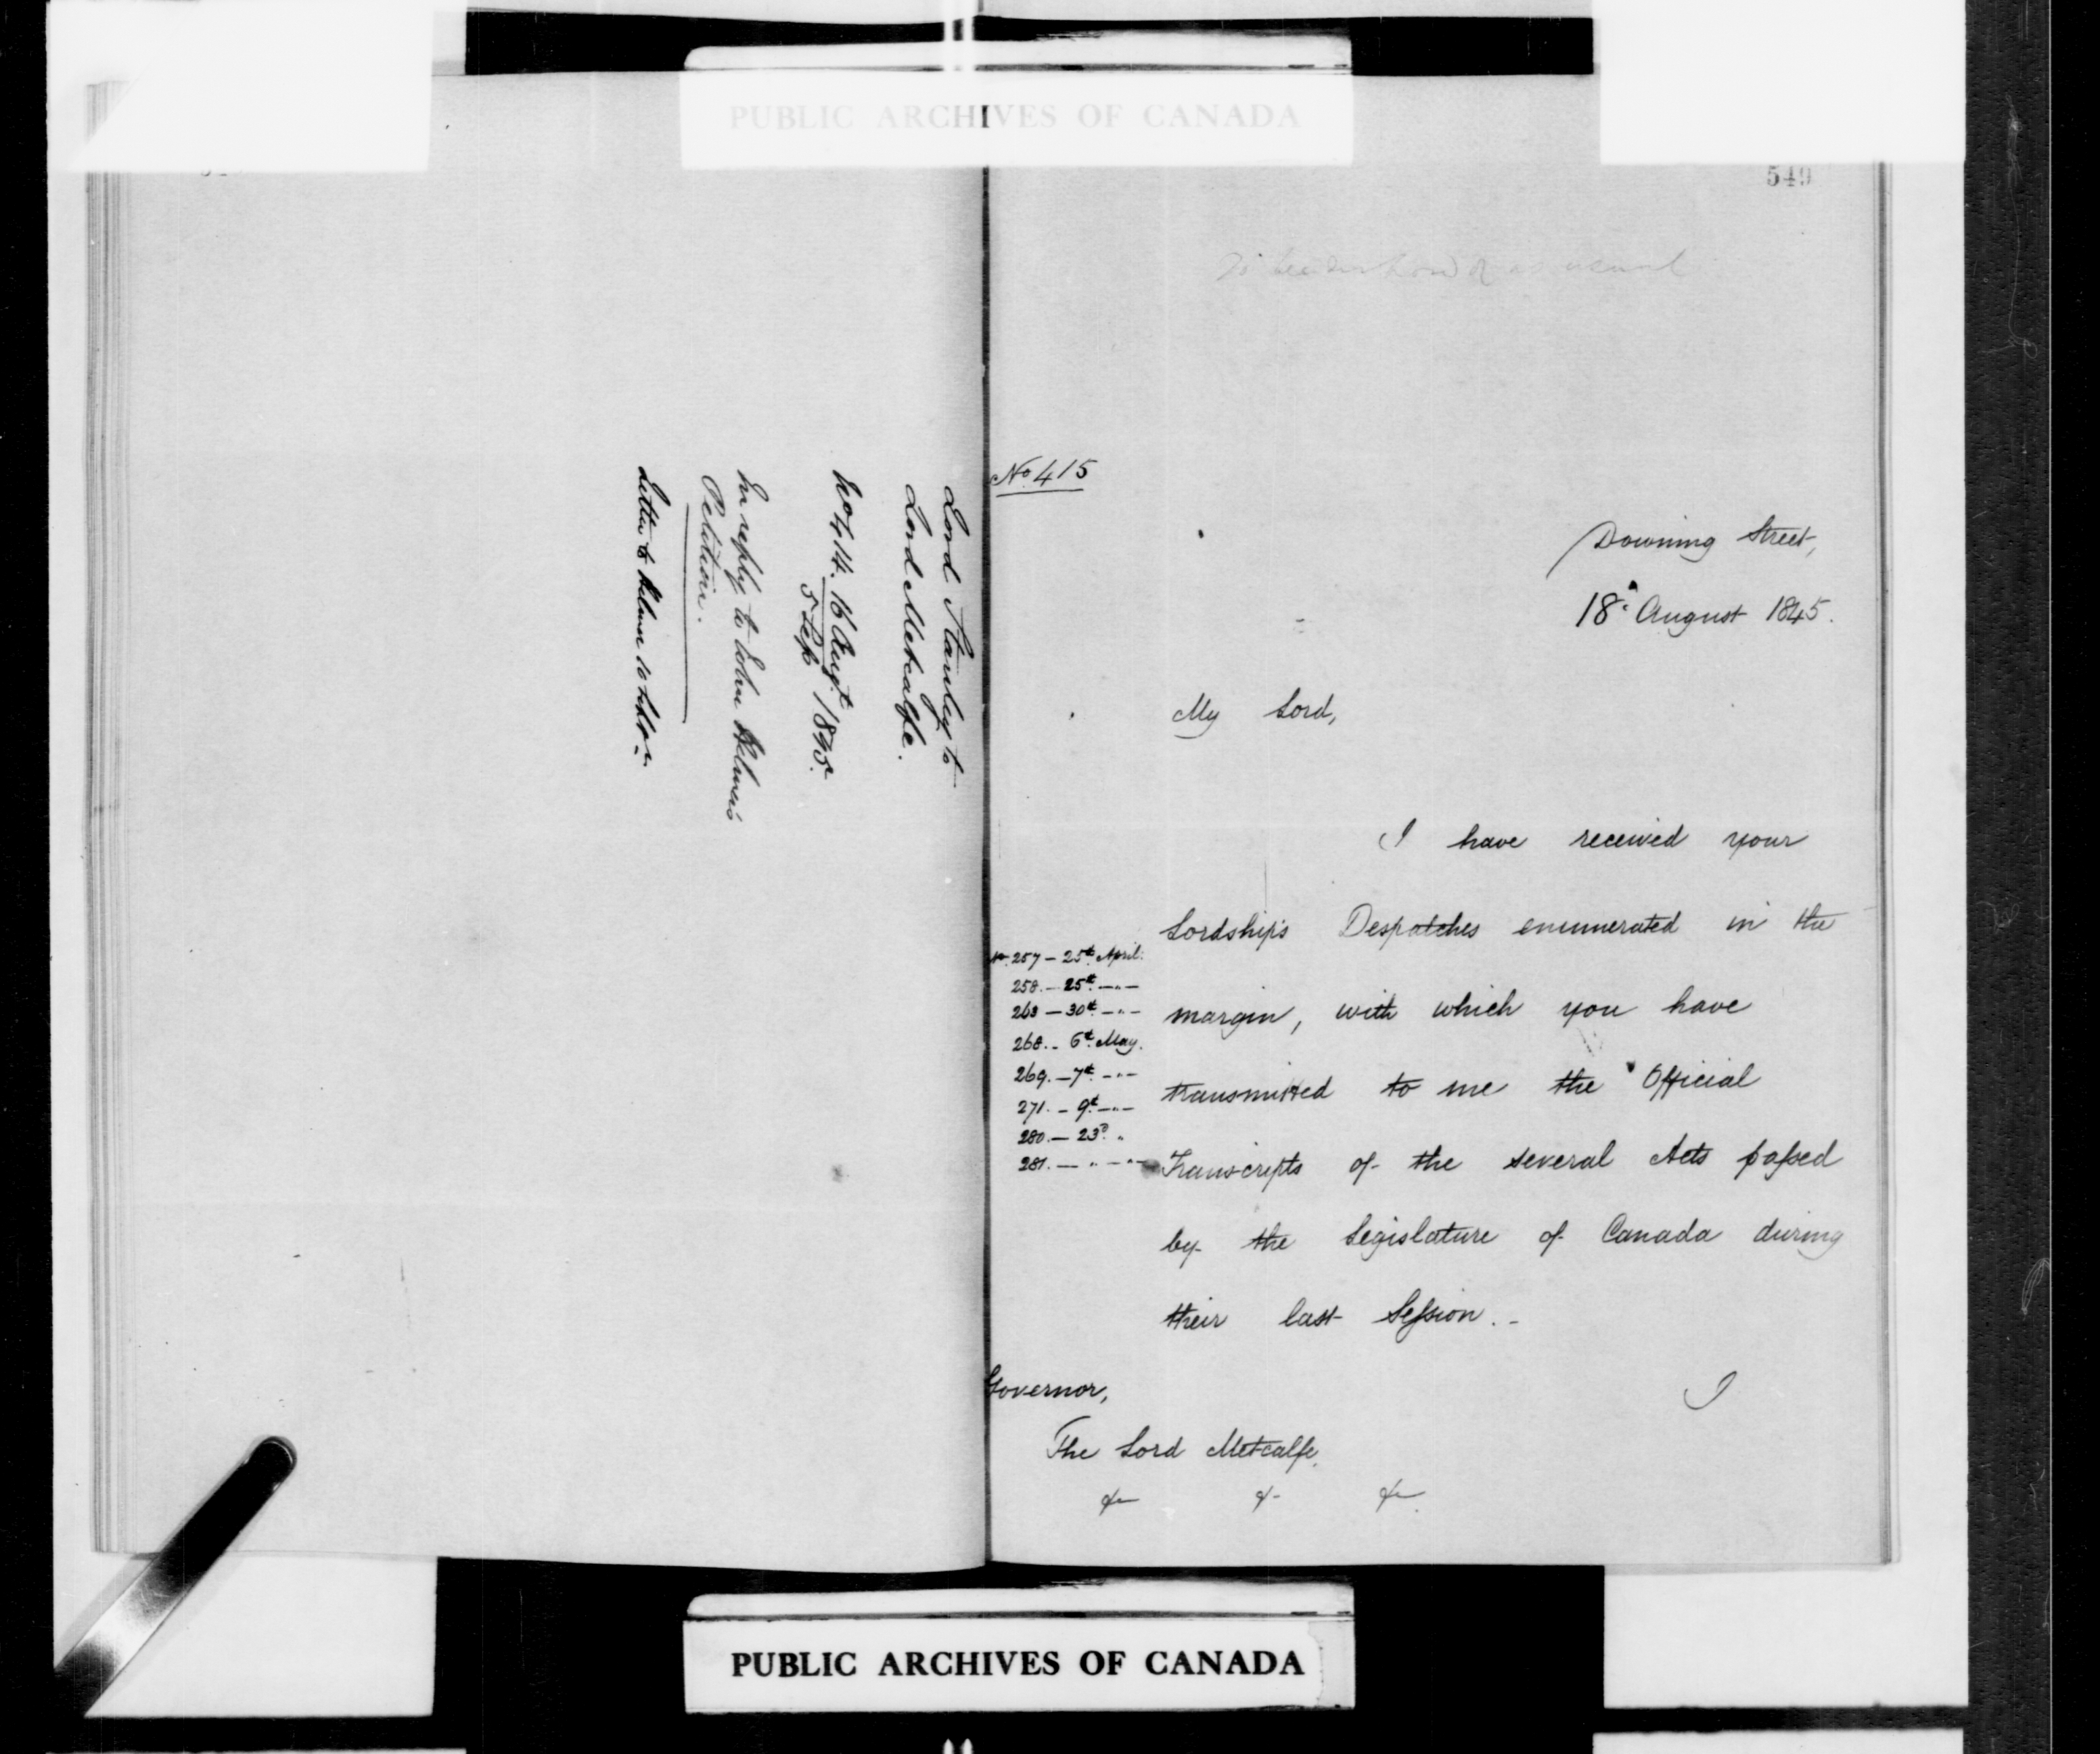 PUBLIC ARCHIVES OF CANADA
Lord Stanley to
Lord Metcalfe.
No 414. 16 Augt 1845.
5 Sep
In reply to John
Petition.
Letter to
549
as usual
No. 415
Downing Street,
18th August 1845.
My Lord,
I have received your
Lordship's Despatches enumerated in the
margin, with which you have
transmitted to me the Official
Transcripts of the several Acts passed
by the Legislature of Canada during
their last Session. -
No. 257 - 25th April.
258. - 25th - " -
263 - 30th - " -
268. - 6th May.
269. - 7th - " -
271. - 9th - " -
280. - 23d. "
281. - " - " -
I
Governor,
The Lord Metcalfe,
&c &c &c
PUBLIC ARCHIVES OF CANADA